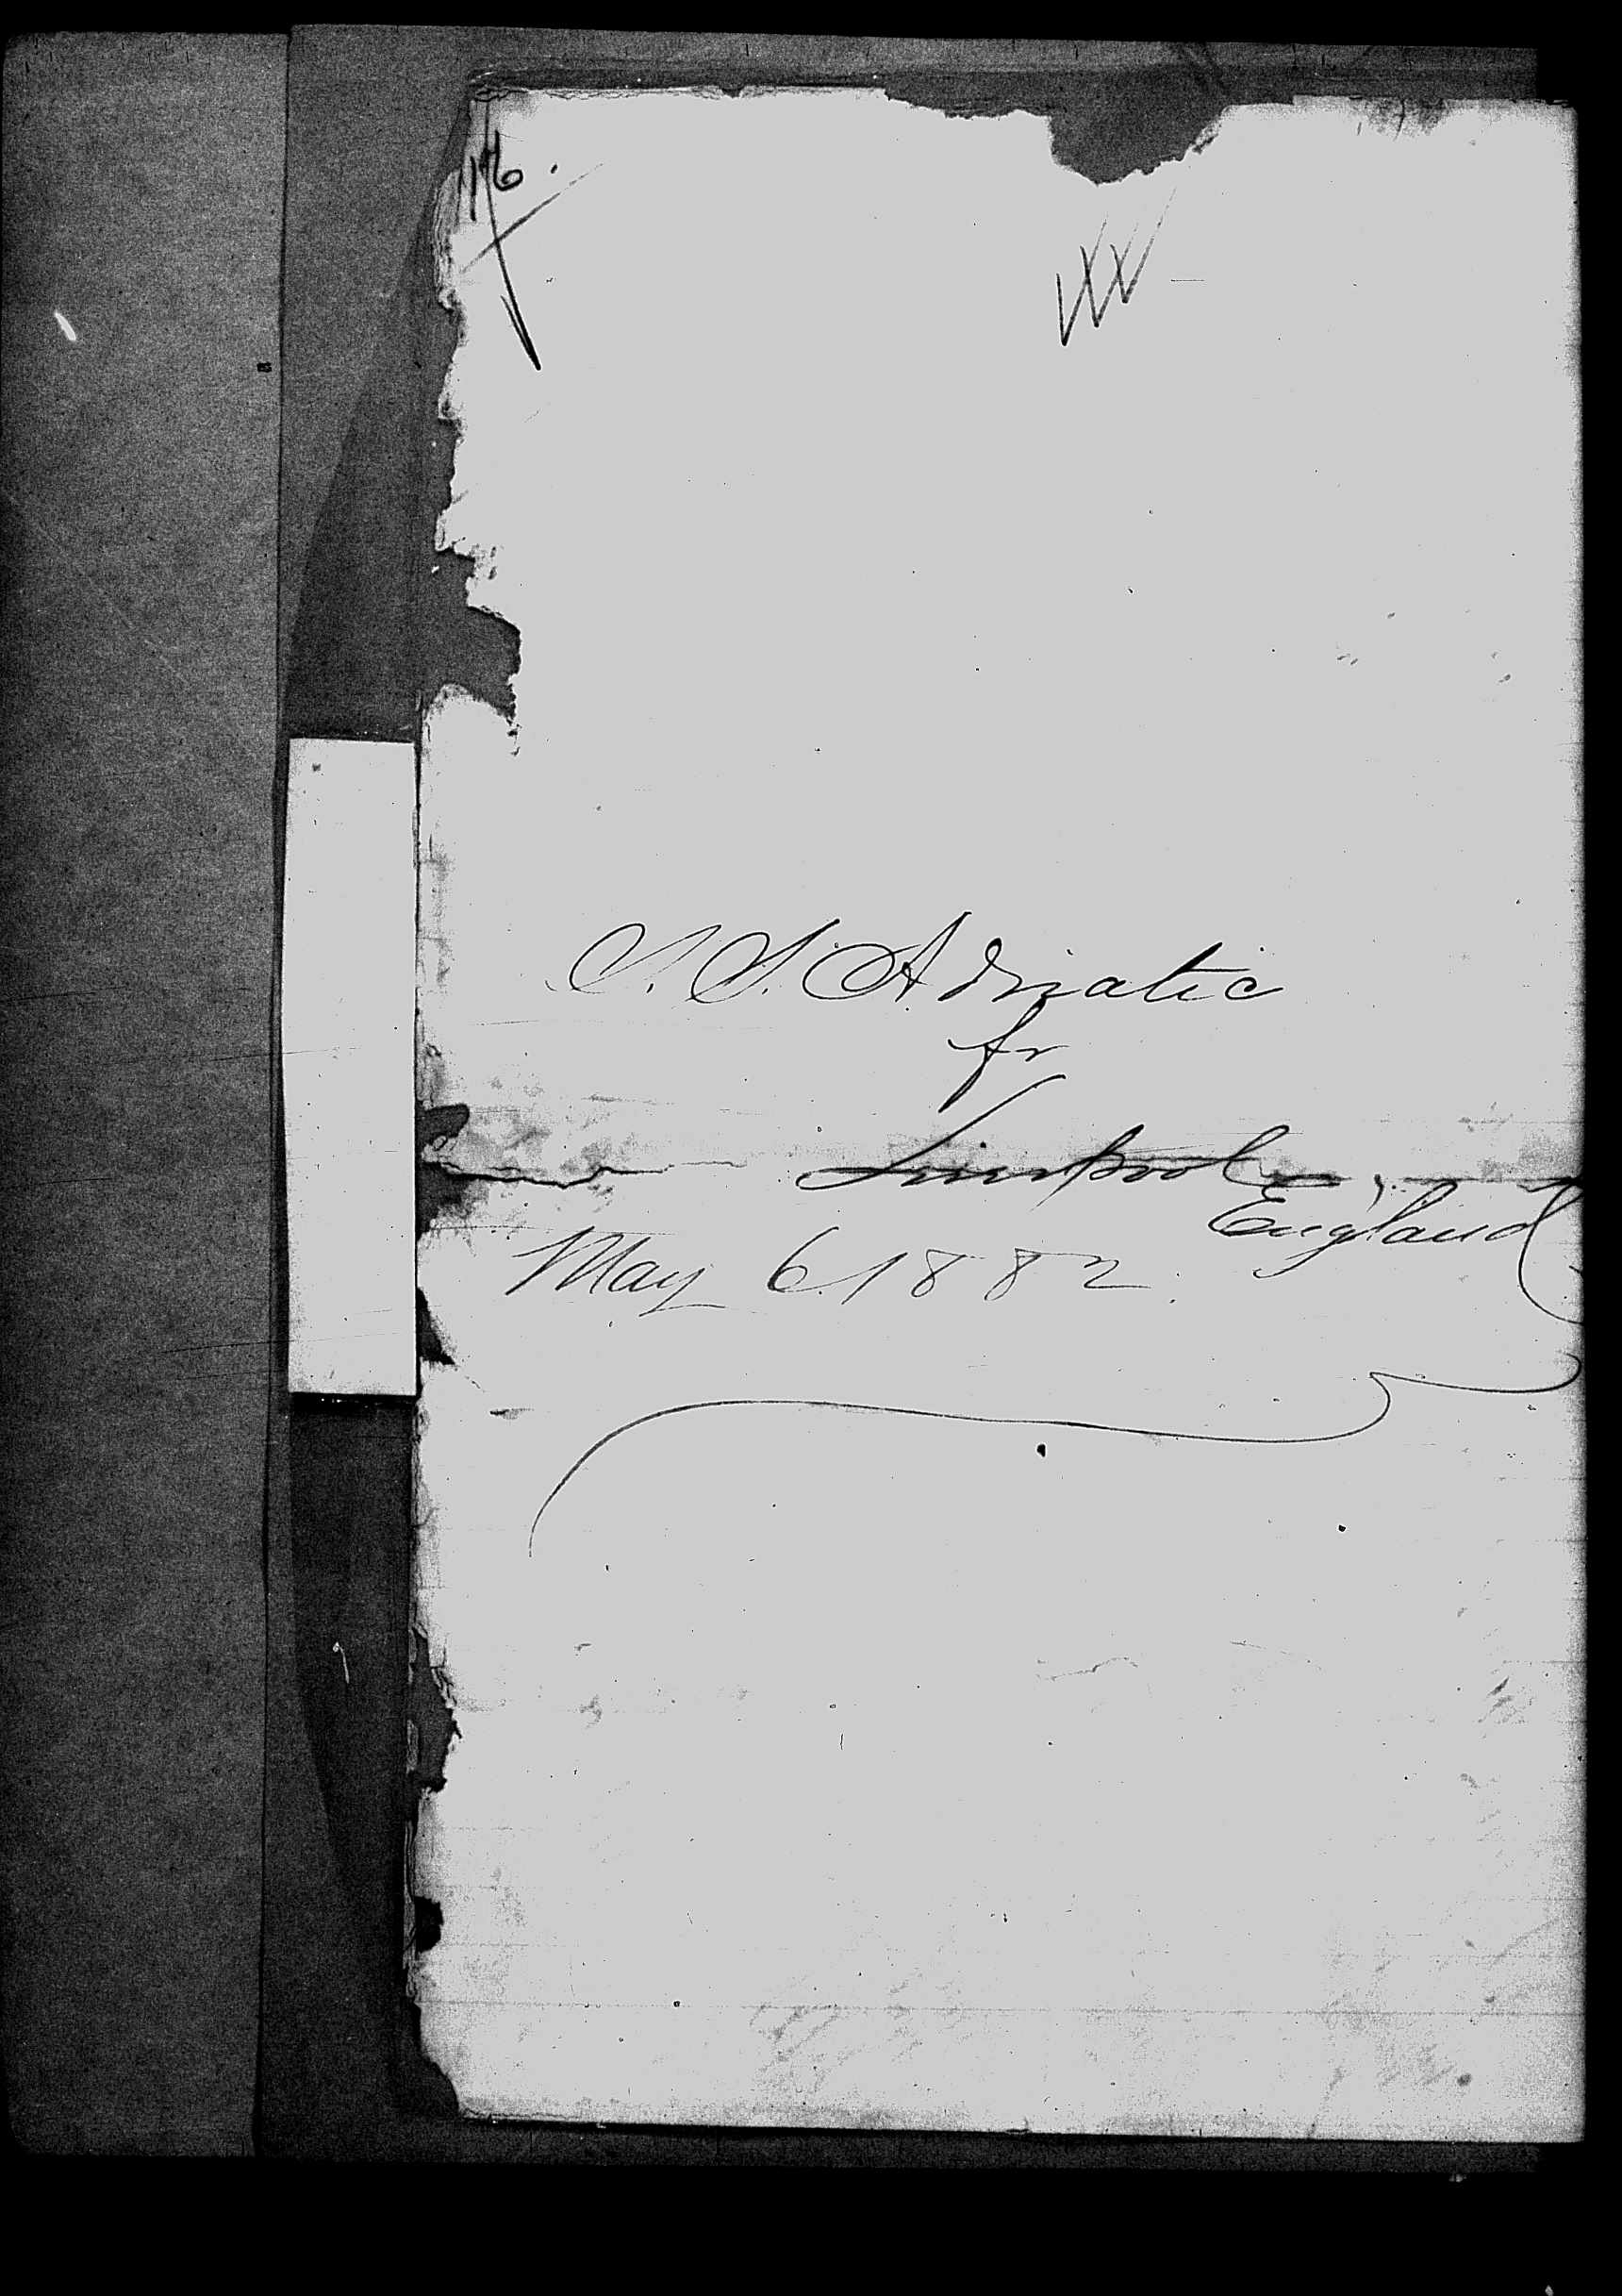 S. S. Adriatic
fr
Liverpool
England
May 6. 1882.